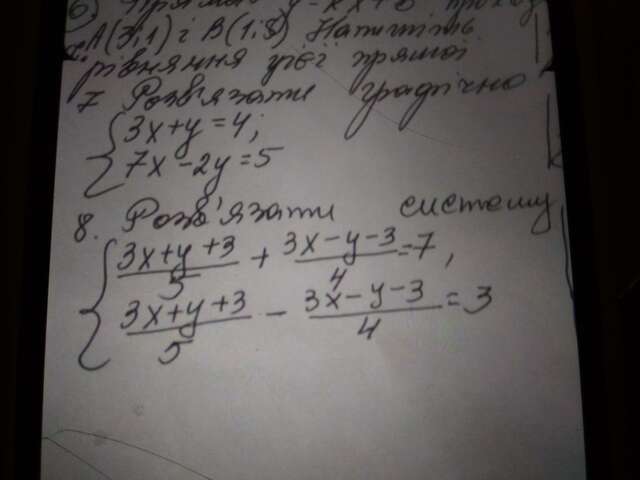 6) Пряма y = kx + b прохо
A(3;1) і B(1;5) Напишіть
рівняння цієї прямої
7 Розв'язати графічно
{3x+y=4;
7x-2y=5
8. Розв'язати систему
{(3x+y+3)/5 + (3x-y-3)/4 = 7,
(3x+y+3)/5 - (3x-y-3)/4 = 3